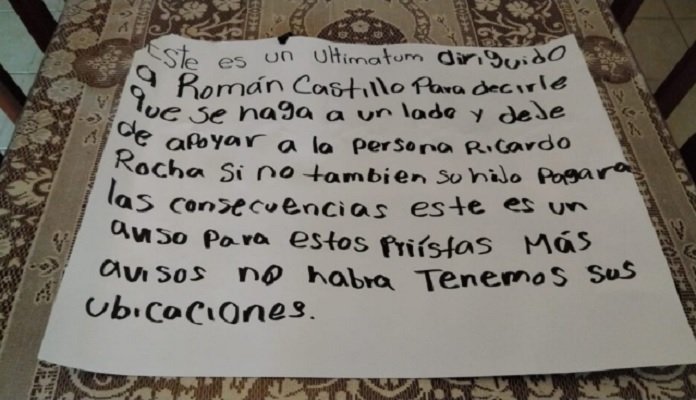 Este es un Ultimatum diriguido
a Román Castillo Para decirle
que se haga a un lado y deje
de apoyar a la persona Ricardo
Rocha si no tambien su hijo Pagara
las consecuencias este es un
aviso para estos Priístas Más
avisos no habra Tenemos sus
Ubicaciones.